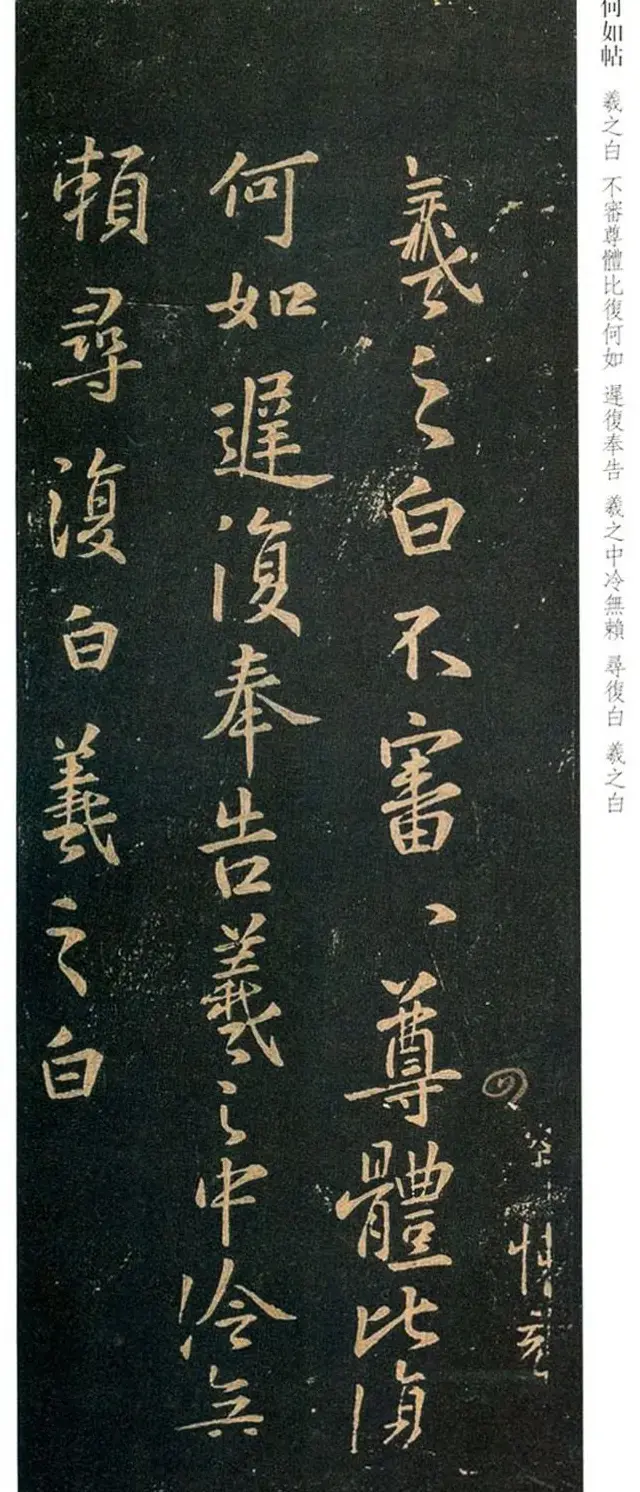 何如帖 羲之白 不審尊體比復何如 遲復奉告 羲之中冷無賴 尋復白 羲之白
羲之白不審、尊體比復
何如遲復奉告羲之中冷無
賴尋復白羲之白